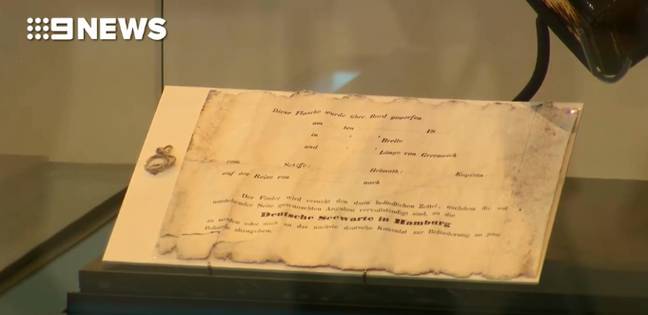 9NEWS
Diese Flasche wurde über Bord geworfen
am ten 18
in Breite
und Länge von Greenwich
vom Schiffe: Heimath: Kapitän:
auf der Reise von nach
Der Finder wird ersucht den darin befindlichen Zettel, nachdem die auf
umstehender Seite gewünschten Angaben vervollständigt sind, an die
Deutsche Seewarte in Hamburg
zu senden oder auch an das nächste deutsche Konsulat zur Beförderung an jene
Behörde abzugeben.